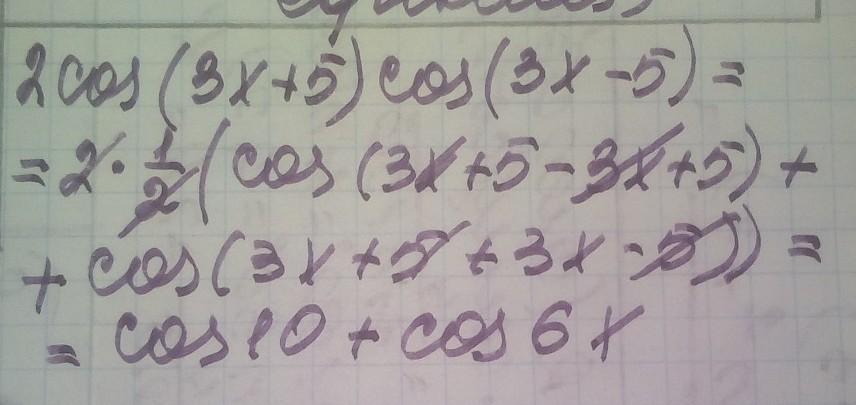 2cos(3x+5)cos(3x-5)=
=2·1/2(cos(3x+5-3x+5)+
+cos(3x+5+3x-5))=
=cos10+cos6x